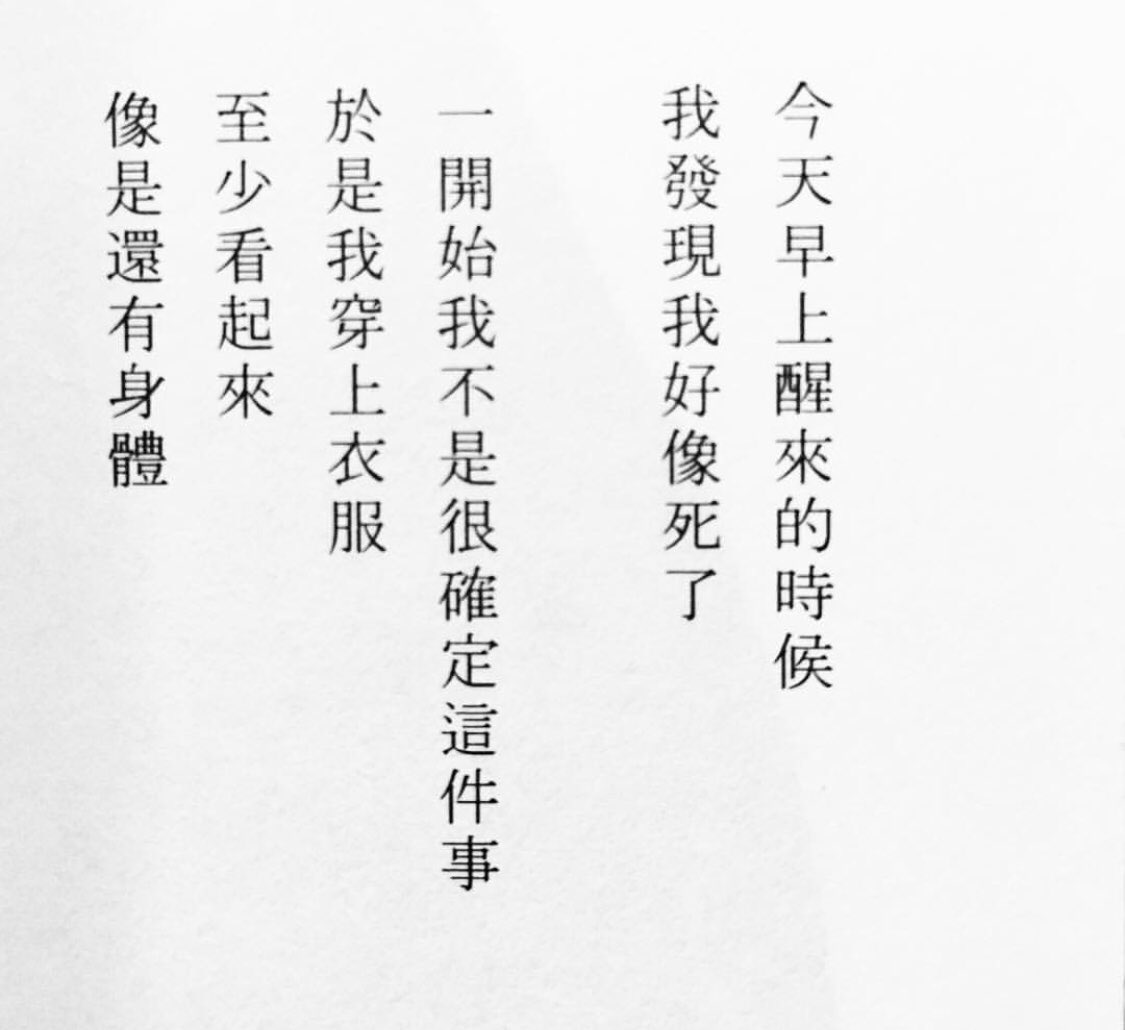 今天早上醒來的時候
我發現我好像死了
一開始我不是很確定這件事
於是我穿上衣服
至少看起來
像是還有身體